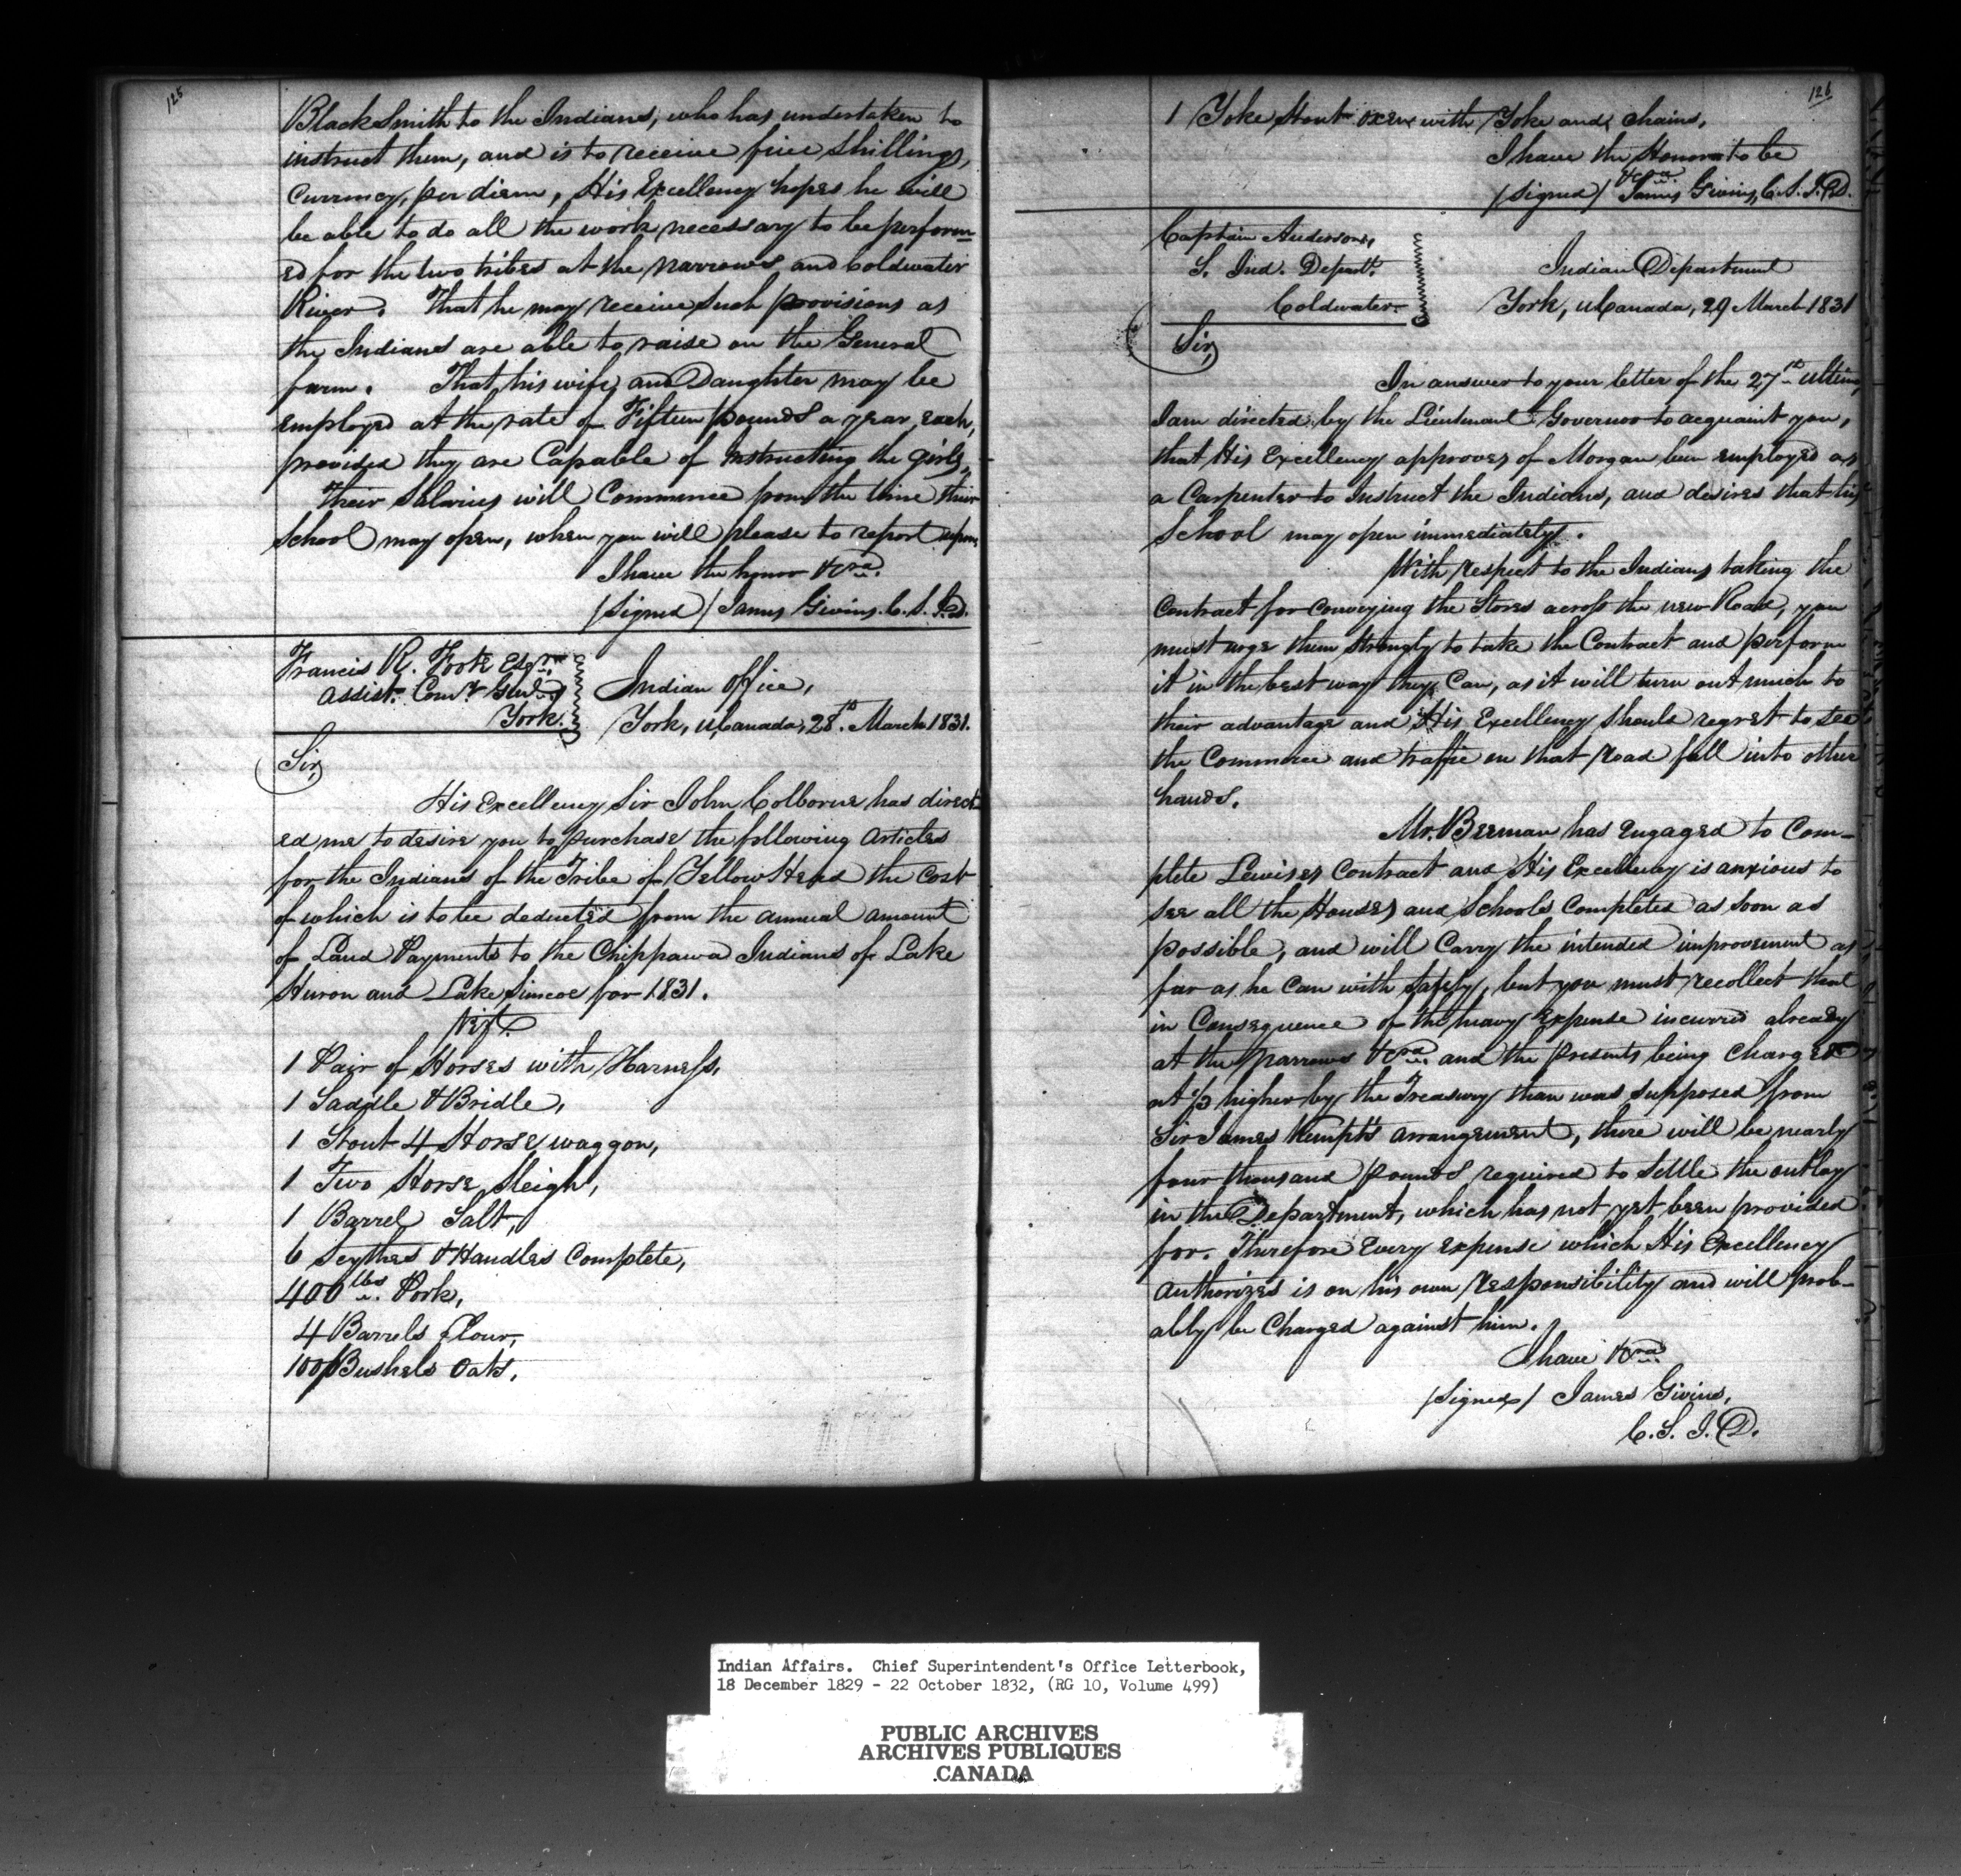 125
BlackSmith to the Indians, who has undertaken to
instruct them, and is to receive five Shillings,
Currency, per diem, His Excellency hopes he will
be able to do all the work necessary to be perform-
ed for the two tribes at the Narrows and Coldwater
River. That he may receive such provisions as
the Indians are able to raise on the General
farm. That his wife and Daughter may be
employed at the rate of Fifteen pounds a year each,
provided they are Capable of instructing the girls,
Their Salaries will Commence from the time their
School may open, when you will please to report upon.
I have the honor &ca.
/Signed/ James Givins. C. S. I. D.
Francis R. Foote Esqre
Assist. Comy Genl
York.
Indian Office,
York, U Canada, 28th. March 1831.
Sir,
His Excellency Sir John Colborne has direct-
ed me to desire you to purchase the following Articles
for the Indians of the Tribe of YellowHead the Cost
of which is to be deducted from the annual amount
of Land Payments to the Chippawa Indians of Lake
Huron and Lake Simcoe for 1831.
Vizt.
1 Pair of Horses with Harness,
1 Saddle & Bridle,
1 Stout 4 Horse waggon,
1 Two Horse Sleigh,
1 Barrel Salt,
6 Scythes & Handles Complete,
400 lbs. Pork,
4 Barrels flour,
100 Bushels Oats,
126
1 Yoke Stout oxen with Yoke and chains,
I have the Honor to be
&ca
/Signed/ James Givins, C. S. I. D.
Captain Anderson,
S. Ind. Depart.
Coldwater.
Indian Department
York, U Canada, 29 March 1831
Sir,
In answer to your letter of the 27th ultimo,
I am directed by the Lieutenant Governor to acquaint you,
that His Excellency approves of Morgan been employed as
a Carpenter to Instruct the Indians, and desires that his
School may open immediately.
With respect to the Indians taking the
Contract for conveying the Stores across the new Road, you
must urge them strongly to take the Contract and perform
it in the best way they Can, as it will turn out much to
their advantage and His Excellency should regret to see
the Commerce and traffic on that road fall into other
hands.
Mr. Beeman has engaged to Com-
plete Lewises Contract and His Excellency is anxious to
see all the Houses and Schools Completed as soon as
possible, and will Carry the intended improvement as
far as he Can with safety, but you must recollect that
in Consequence of the heavy Expense incurred already
at the Narrows &ca. and the presents being Charged
at 1/3 higher by the Treasury than was supposed from
Sir James Kempt's arrangement, there will be nearly
four thousand pounds required to settle the outlay
in the Department, which has not yet been provided
for. Therefore every expense which His Excellency
authorizes is on his own responsibility and will prob-
ably be Charged against him.
I have &ca
/Signed/ James Givins,
C. S. I. D.
Indian Affairs. Chief Superintendent's Office Letterbook,
18 December 1829 - 22 October 1832, (RG 10, Volume 499)
PUBLIC ARCHIVES
ARCHIVES PUBLIQUES
CANADA